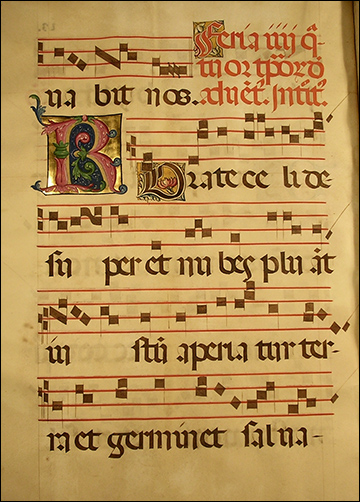 Feria iiij q̄
tuor tp̄or̄ d
na bit nos. aduēt. Intit̄.
R O rate ce li de
su per et nu bes plu āt
iu stū aperia tur ter-
ra et germinet sal ua-